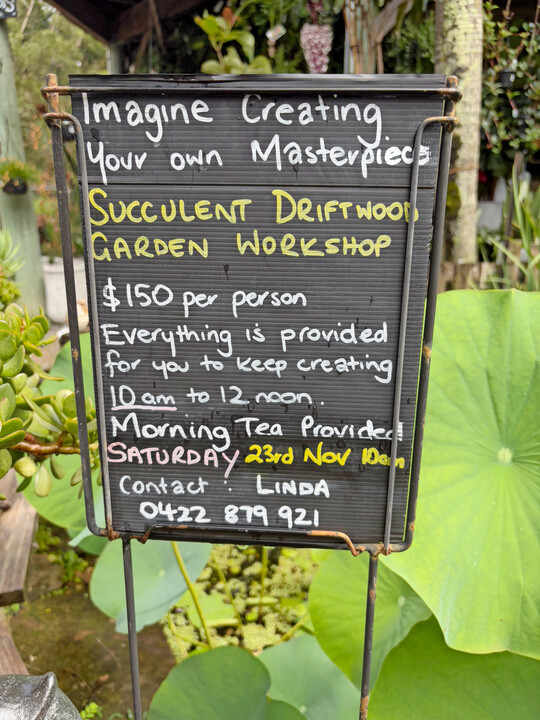 Imagine Creating
Your own Masterpiece
SUCCULENT DRIFTWOOD
GARDEN WORKSHOP
$150 per person
Everything is provided
for you to keep creating
10am to 12 noon.
Morning Tea Provided
SATURDAY 23rd Nov 10am
Contact : LINDA
0422 879 921